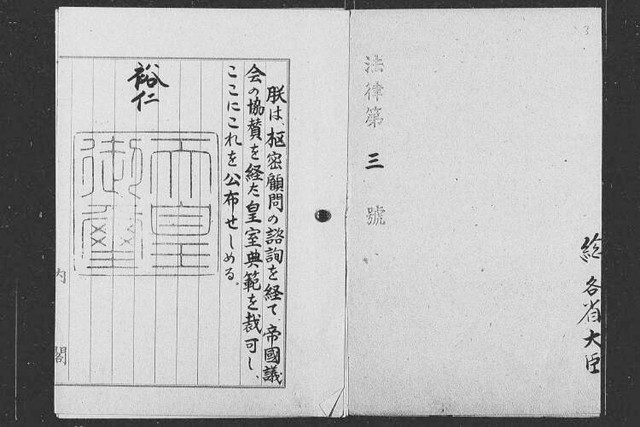 3
法律第三號
総 各省大臣
朕は、枢密顧問の諮詢を経て、帝國議
会の協賛を経た皇室典範を裁可し、
ここにこれを公布せしめる。
裕仁
天皇
御璽
内閣